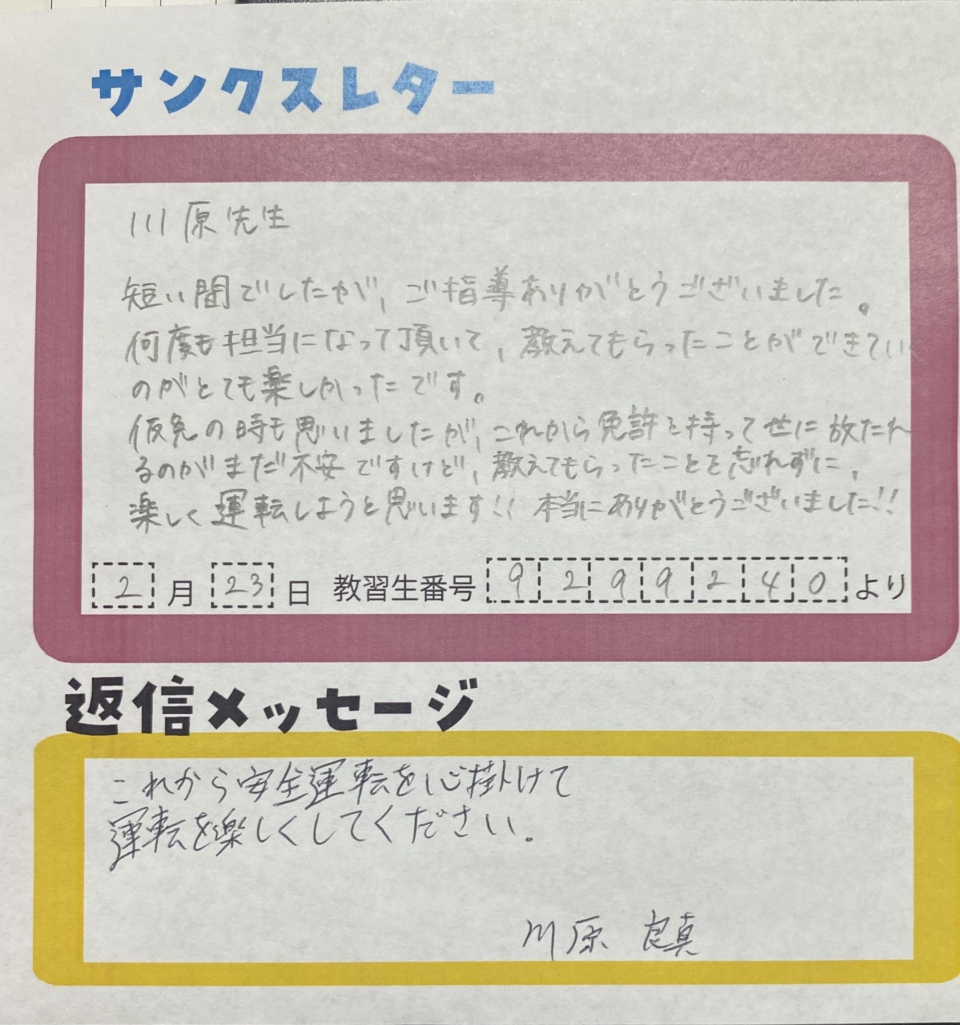 サンクスレター
川原先生
短い間でしたが、ご指導ありがとうございました。
何度も担当になって頂いて、教えてもらったことができていく
のがとても楽しかったです。
仮免の時も思いましたが、これから免許を持って世に放たれ
るのがまだ不安ですけど、教えてもらったことを忘れずに、
楽しく運転しようと思います!! 本当にありがとうございました!!
2月23日 教習生番号 9299240より
返信メッセージ
これから安全運転を心掛けて
運転を楽しくしてください。
川原 良真